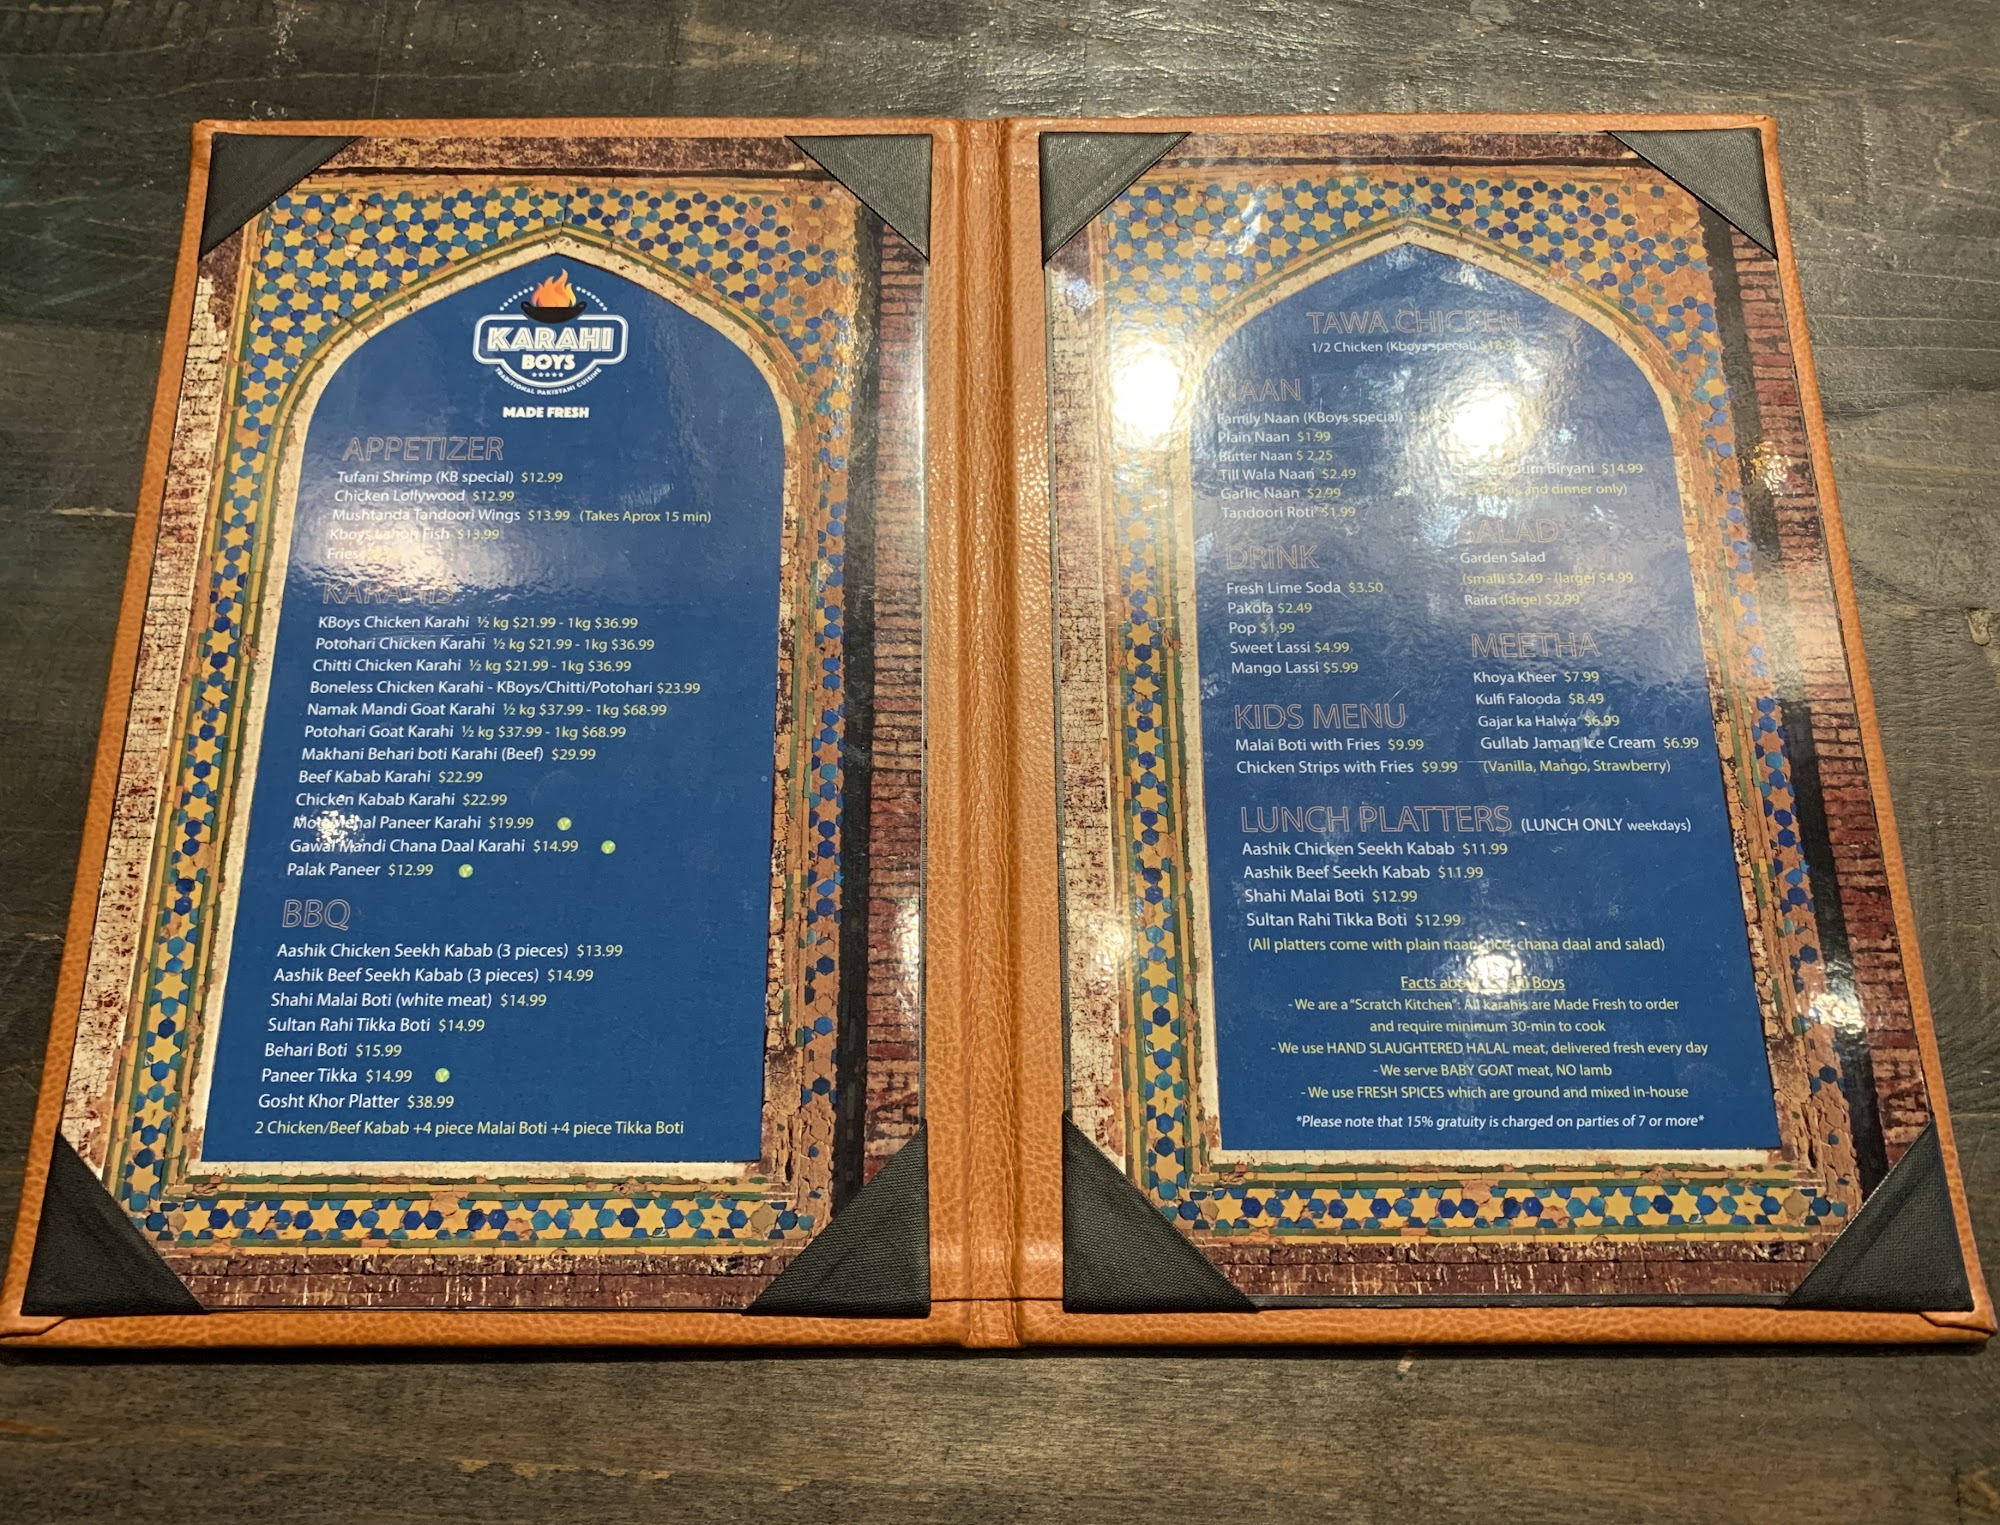 KARAHI
BOYS
TRADITIONAL PAKISTANI CUISINE
MADE FRESH
APPETIZER
Tufani Shrimp (KB special) $12.99
Chicken Lollywood $12.99
Mushtanda Tandoori Wings $13.99 (Takes Aprox 15 min)
Kboys Lahori Fish $13.99
Fries
KARAHIS
KBoys Chicken Karahi ½ kg $21.99 - 1kg $36.99
Potohari Chicken Karahi ½ kg $21.99 - 1kg $36.99
Chitti Chicken Karahi ½ kg $21.99 - 1kg $36.99
Boneless Chicken Karahi - KBoys/Chitti/Potohari $23.99
Namak Mandi Goat Karahi ½ kg $37.99 - 1kg $68.99
Potohari Goat Karahi ½ kg $37.99 - 1kg $68.99
Makhani Behari boti Karahi (Beef) $29.99
Beef Kabab Karahi $22.99
Chicken Kabab Karahi $22.99
Paneer Karahi $19.99
Gawal Mandi Chana Daal Karahi $14.99
Palak Paneer $12.99
BBQ
Aashik Chicken Seekh Kabab (3 pieces) $13.99
Aashik Beef Seekh Kabab (3 pieces) $14.99
Shahi Malai Boti (white meat) $14.99
Sultan Rahi Tikka Boti $14.99
Behari Boti $15.99
Paneer Tikka $14.99
Gosht Khor Platter $38.99
2 Chicken/Beef Kabab +4 piece Malai Boti +4 piece Tikka Boti
TAWA CHICKEN
1/2 Chicken (Kboys special) $18.99
NAAN
Family Naan (KBoys special)
Plain Naan $1.99
Butter Naan $ 2.25
Till Wala Naan $2.49
Garlic Naan $2.99
Tandoori Roti $1.99
DRINK
Fresh Lime Soda $3.50
Pakola $2.49
Pop $1.99
Sweet Lassi $4.99
Mango Lassi $5.99
KIDS MENU
Malai Boti with Fries $9.99
Chicken Strips with Fries $9.99
Dum Biryani $14.99
and dinner only)
SALAD
Garden Salad
(small) $2.49 - (large) $4.99
Raita (large) $2.99
MEETHA
Khoya Kheer $7.99
Kulfi Falooda $8.49
Gajar ka Halwa $6.99
Gullab Jaman Ice Cream $6.99
(Vanilla, Mango, Strawberry)
LUNCH PLATTERS (LUNCH ONLY weekdays)
Aashik Chicken Seekh Kabab $11.99
Aashik Beef Seekh Kabab $11.99
Shahi Malai Boti $12.99
Sultan Rahi Tikka Boti $12.99
(All platters come with plain naan, rice, chana daal and salad)
Facts about Karahi Boys
- We are a "Scratch Kitchen": All karahis are Made Fresh to order
and require minimum 30-min to cook
- We use HAND SLAUGHTERED HALAL meat, delivered fresh every day
- We serve BABY GOAT meat, NO lamb
- We use FRESH SPICES which are ground and mixed in-house
*Please note that 15% gratuity is charged on parties of 7 or more*